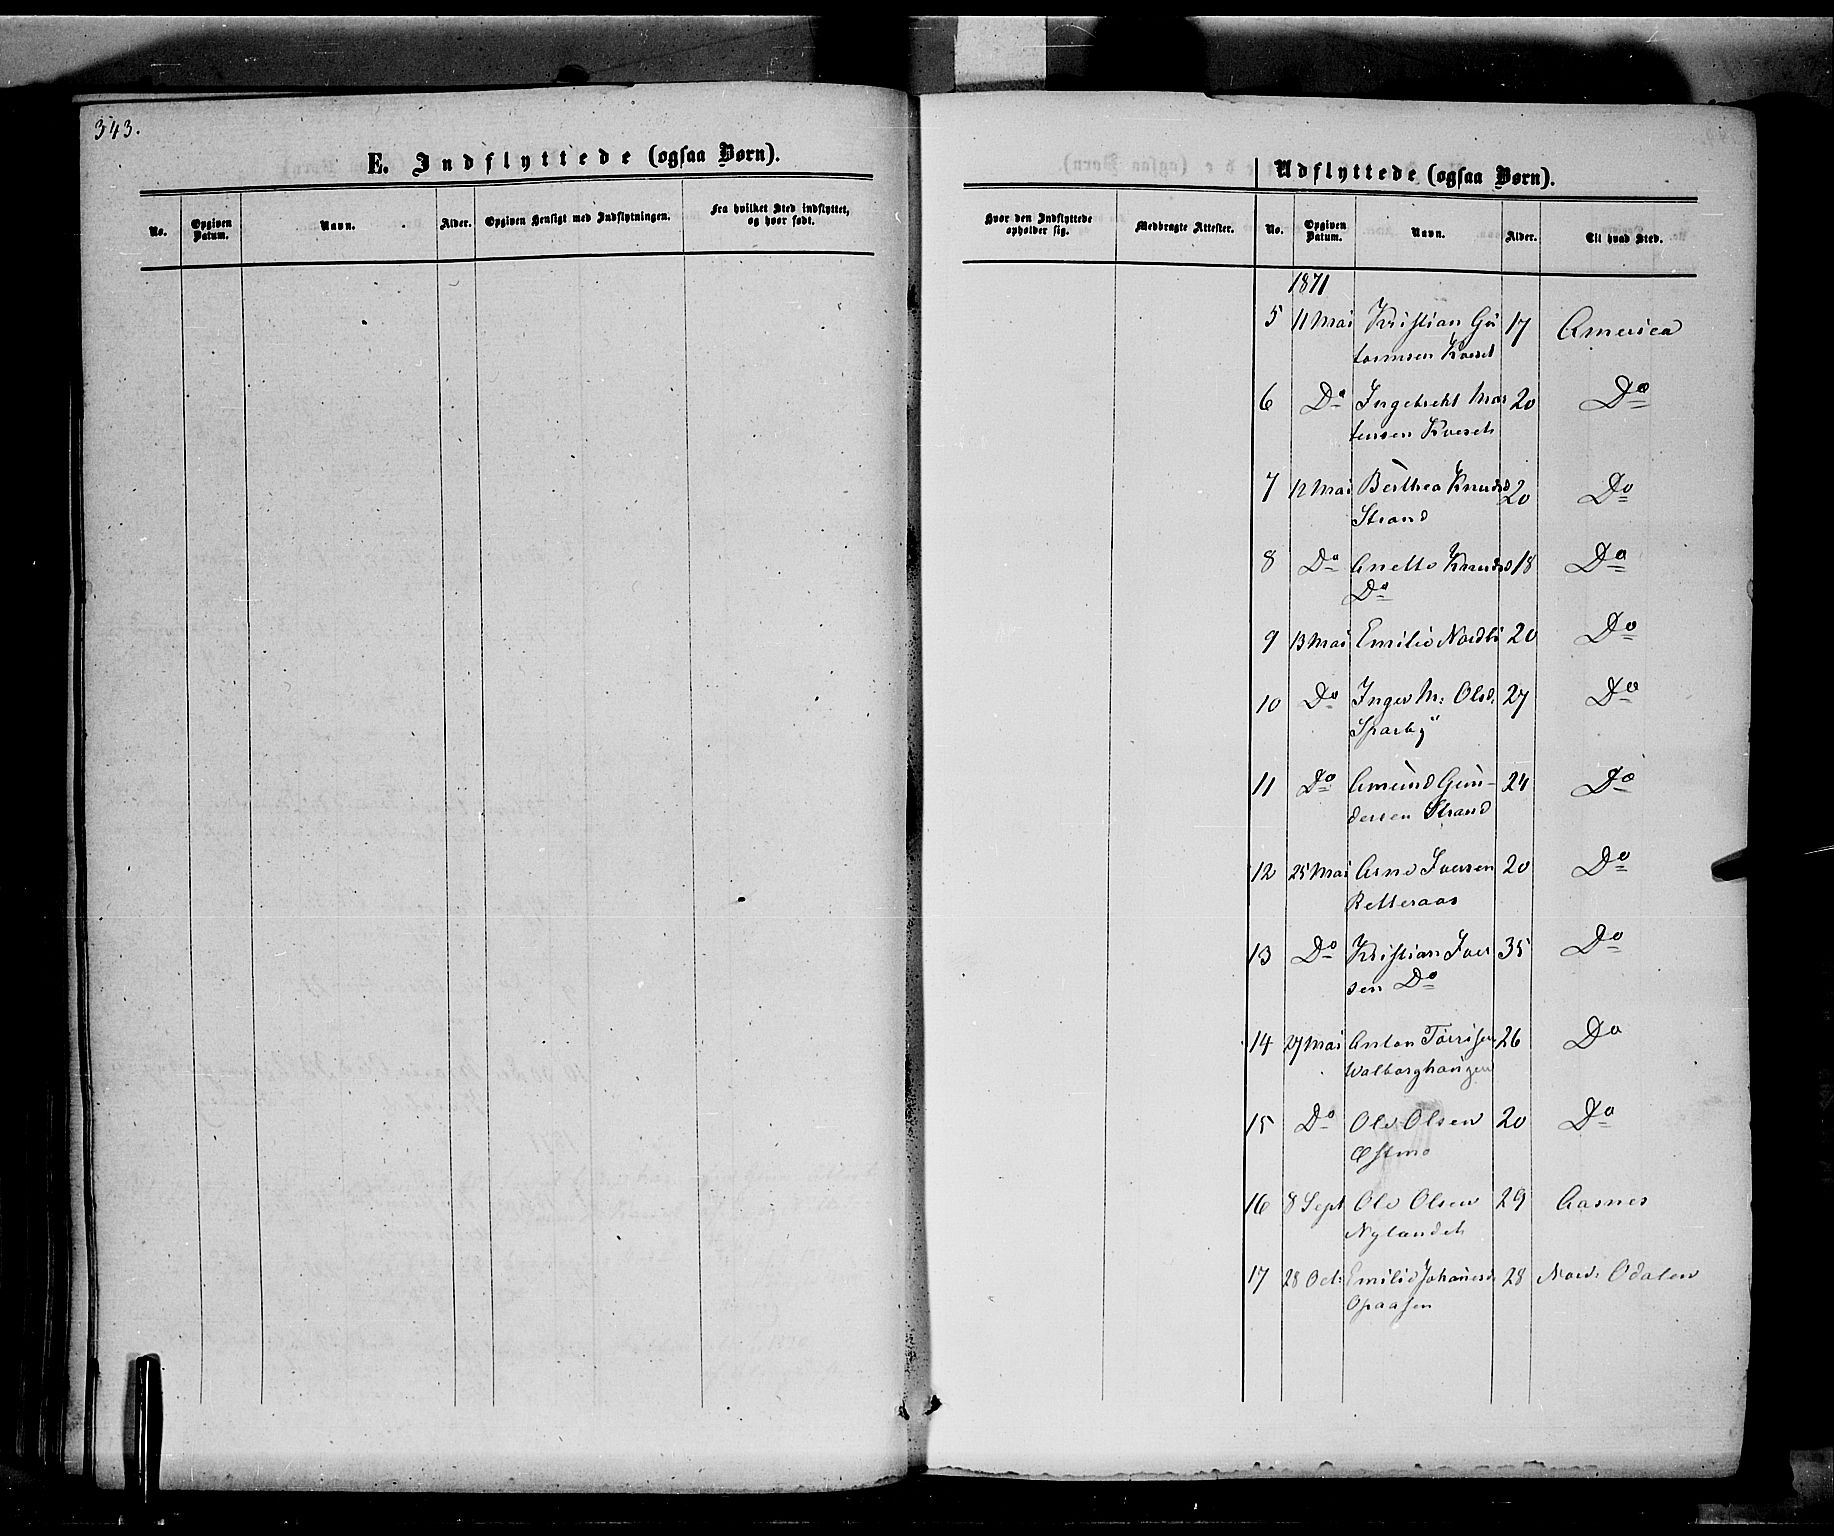 343.
E. Indflyttede (ogsaa Børn).
No. Opgiven Datum. Navn. Alder. Opgiven Hensigt med Indflytningen. Fra hvilket Sted indflyttet, og hvor født.
Udflyttede (ogsaa Børn).
Hvor den Indflyttede opholder sig. Medbragte Attester. No. Opgiven Datum. Navn. Alder. Til hvad Sted.
1871
5 11 Mai Kristian Gu 17 America
tormsen Kveset
6 Do Ingebreht Mor 20 Do
tensen Kveset
7 12 Mai Berthea Knudsd 20 Do
Strand
8 Do Anette Knudsd 18 Do
Do
9 13 Mai Emilie Nordli 20 Do
10 Do Inger M: Olsd. 27 Do
Sparby
11 Do Amund Gun- 24 Do
dersen Strand
12 25 Mai Arne Iversen 20 Do
Retteraas
13 Do Kristian Iver 35 Do
sen Do
14 27 Mai Anton Torrisen 26 Do
Walborghaugen
15 Do Ole Olsen 20 Do
Østmo
16 8 Sept Ole Olsen 29 Aasnes
Nylandet
17 28 Oct: Emilie Johanesd 28 Nord: Odalen
Opaasen